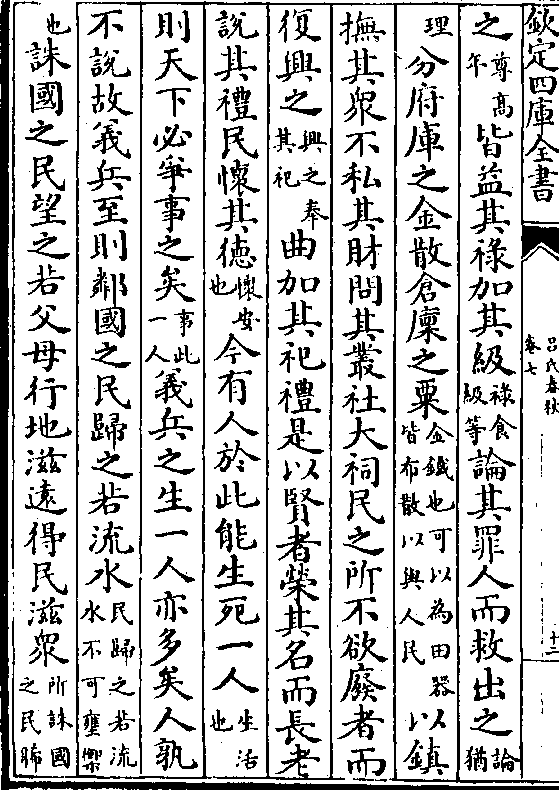 欽定四庫全書
呂氏春秋
卷七
十三
之尊高年皆益其祿加其級祿食級等論其罪人而救出之論猶
理分府庫之金散倉廩之粟金鐵也可以為田器皆布散以與人民以鎮
撫其衆不私其財問其叢社大祠民之所不欲廢者而
復興之興之奉其祀曲加其祀禮是以賢者榮其名而長老
說其禮民懷其德懷安也今有人於此能生死一人生活也
則天下必爭事之矣事此一人義兵之生一人亦多矣人孰
不說故義兵至則鄰國之民歸之若流水民歸之若流水不可壅禦
也誅國之民望之若父母行地滋遠得民滋衆所誅國之民睎